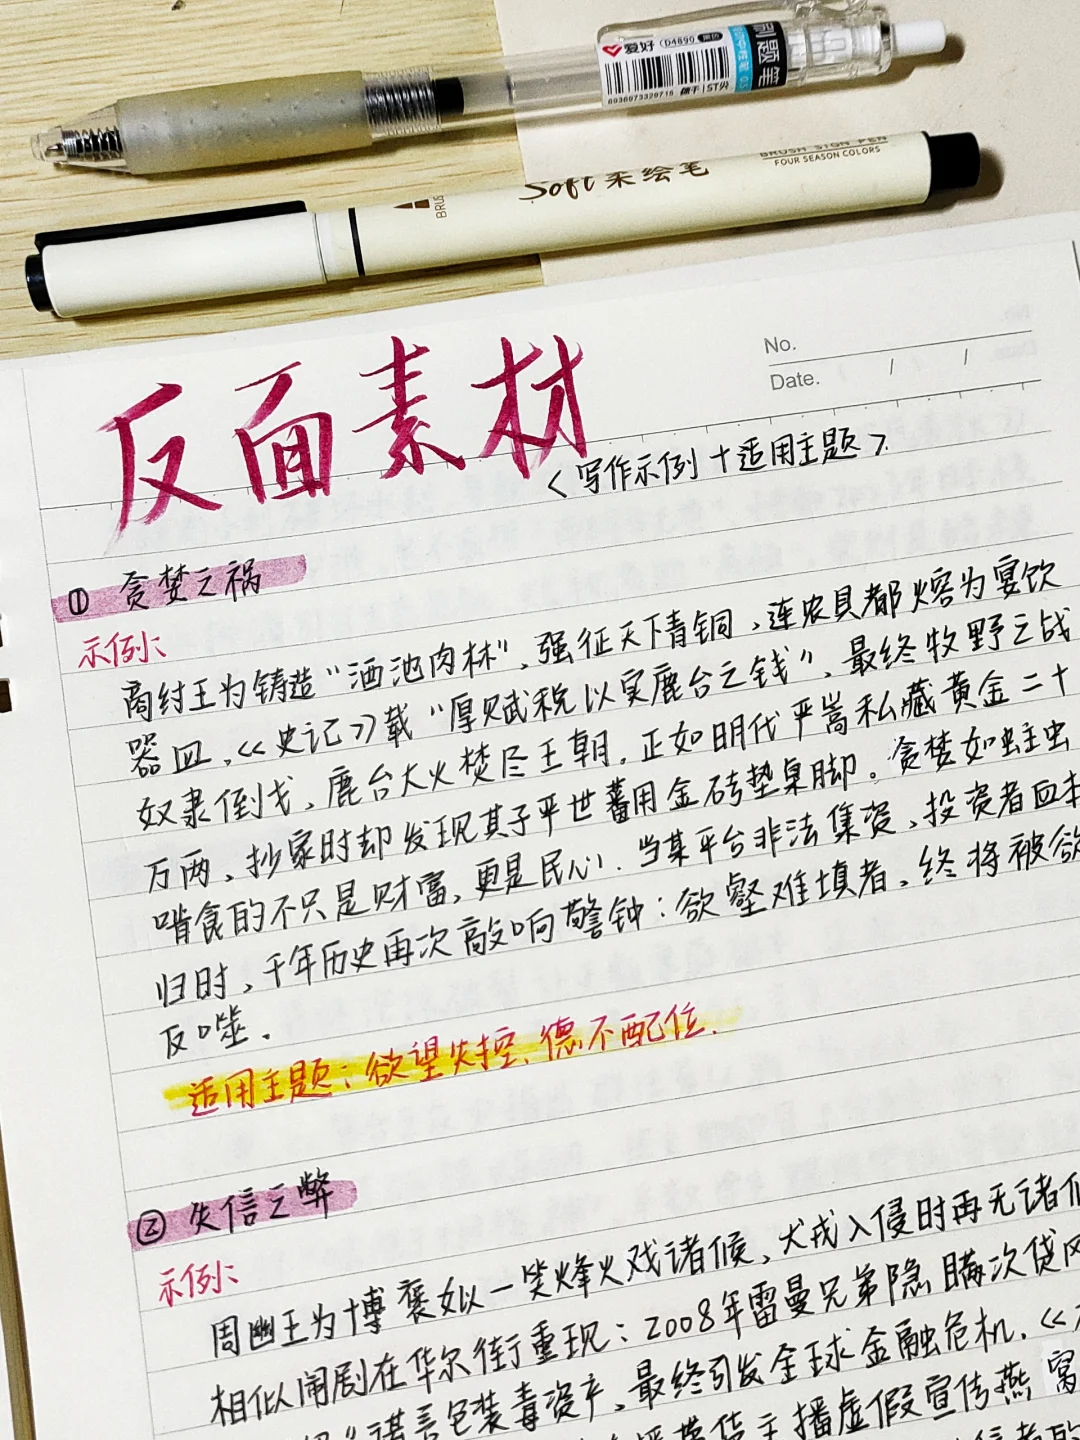 爱好 D4890
刷题笔
6936973329716 德干 ST尖
Soft 柔绘笔
BRUSH SIGN PEN
FOUR SEASON COLORS
No.
Date. / /
反面素材
<写作示例+适用主题>
① 贪婪之祸
示例:
商纣王为铸造“酒池肉林”,强征天下青铜,连农具都熔为宴饮
器皿,《史记》载“厚赋税以实鹿台之钱”,最终牧野之战
奴隶倒戈,鹿台大火焚尽王朝。正如明代严嵩私藏黄金二十
万两,抄家时却发现其子严世蕃用金砖垫桌脚。贪婪如蛀虫
啃食的不只是财富,更是民心。当某平台非法集资,投资者血本
归时,千年历史再次敲响警钟:欲壑难填者,终将被欲
反噬。
适用主题:欲望失控、德不配位.
② 失信之弊
示例:
周幽王为博褒姒一笑烽火戏诸候,犬戎入侵时再无诸
相似闹剧在华尔街重现:2008年雷曼兄弟隐瞒次贷风
“谎言包装毒资产,最终引发全球金融危机.《
带货主播虚假宣传燕窝